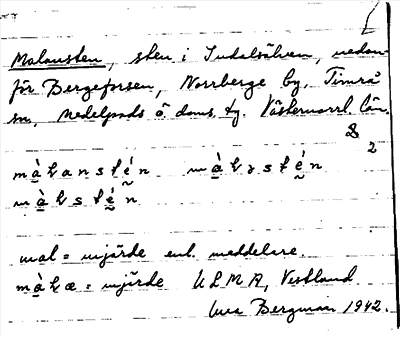 Malansten, sten i Indalsälven, nedan-
för Bergeforsen, Norrberge by, Timrå
sn, Medelpads ö. doms. tg. Västernorrl. län.
2
màḷanstén màḷǝstén
màḷstén
mal = mjärde enl. meddelare.
màḷæ = mjärde ULMA, Vestlund
Bergman 1942.